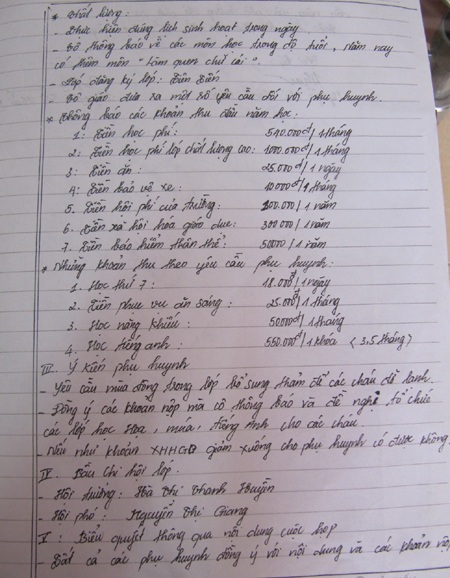 * Chất lượng:
- Thực hiện đúng lịch sinh hoạt trong ngày
- Cô thông báo về các môn học trong độ tuổi, năm nay
có thêm môn "Làm quen chữ cái".
- Lớp đăng ký lớp: Tiên Tiến
- Cô giáo đưa ra một số yêu cầu đối với phụ huynh.
* Thông báo các khoản thu đầu năm học:
1: Tiền học phí: 540.000đ/1tháng
2: Tiền học phí lớp chất lượng cao: 1000.000đ/1tháng
3: Tiền ăn: 25.000đ/1ngày
4: Tiền bảo vệ xe: 10000đ/1tháng
5. Tiền hội phí của trường: 200.000/1năm
6: Tiền xã hội hóa giáo dục: 300.000/1năm
7. Tiền bảo hiểm thân thể: 50000/1năm
* Những khoản thu theo yêu cầu phụ huynh:
1. Học thứ 7: 18.000đ/1ngày
2. Tiền phục vụ ăn sáng: 25.000đ/1tháng
3. Học năng khiếu: 50000đ/1tháng
4. Học tiếng anh: 550.000đ/1khóa (3,5tháng)
III. Ý kiến phụ huynh
- Yêu cầu mùa đông trong lớp bổ sung thảm để các cháu đỡ lạnh.
- Đồng ý các khoản nộp mà cô thông báo và đề nghị tổ chức
các lớp học Họa, múa, tiếng Anh cho các cháu.
- Nếu như khoản XHHGD giảm xuống cho phụ huynh có được không.
IV. Bầu chi hội lớp.
- Hội trưởng: Hà Thị Thanh Huyền
- Hội phó: Nguyễn Thị Giang
V: Biểu quyết thông qua nội dung cuộc họp
- Tất cả các phụ huynh đồng ý với nội dung và các khoản nộp